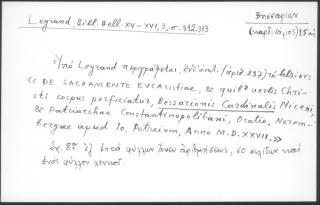 Legrand, Bibl. Hell. XV-XVI, 3, σ. 312-313
Βησσαρίων
(καρδινάλιος) 15 αἰ.
Ὑπὸ Legrand περιγράφεται, (ἀριθ. 287) τὸ
« DE SACRAMENTO EVCARISTIAE, & quibꝰ verbis Chri-
sti corpus perficiatur, Bessarionis Cardinalis Niceni,
& patriarchae Constantinopolitani, Oratio. Norem-
bergae apud Io. Petreium, Anno M.D.XXVII. »
Σχ. 8ον ἐξ ἑπτὰ φύλλων ἄνευ ἀριθμήσεως, σελίδων καὶ
ἑνὸς φύλλου λευκοῦ.